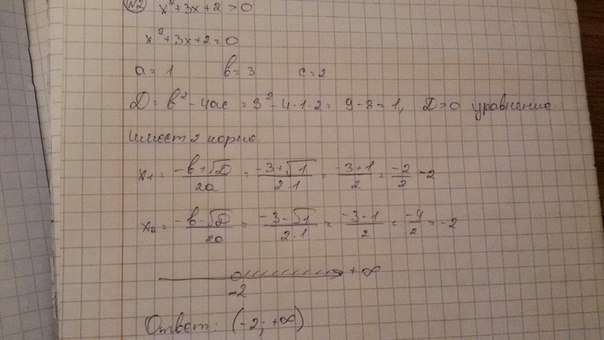 №2 x²+3x+2>0
x²+3x+2=0
a=1 b=3 c=2
D=b²-4ac=3²-4·1·2=9-8=1, D>0 уравнение
имеет 2 корня
x₁=(-b+√D)/2a=(-3+√1)/2·1=(-3+1)/2=-2/2=-2
x₂=(-b-√D)/2a=(-3-√1)/2·1=(-3-1)/2=-4/2=-2
-2 +∞
Ответ: (-2; +∞)